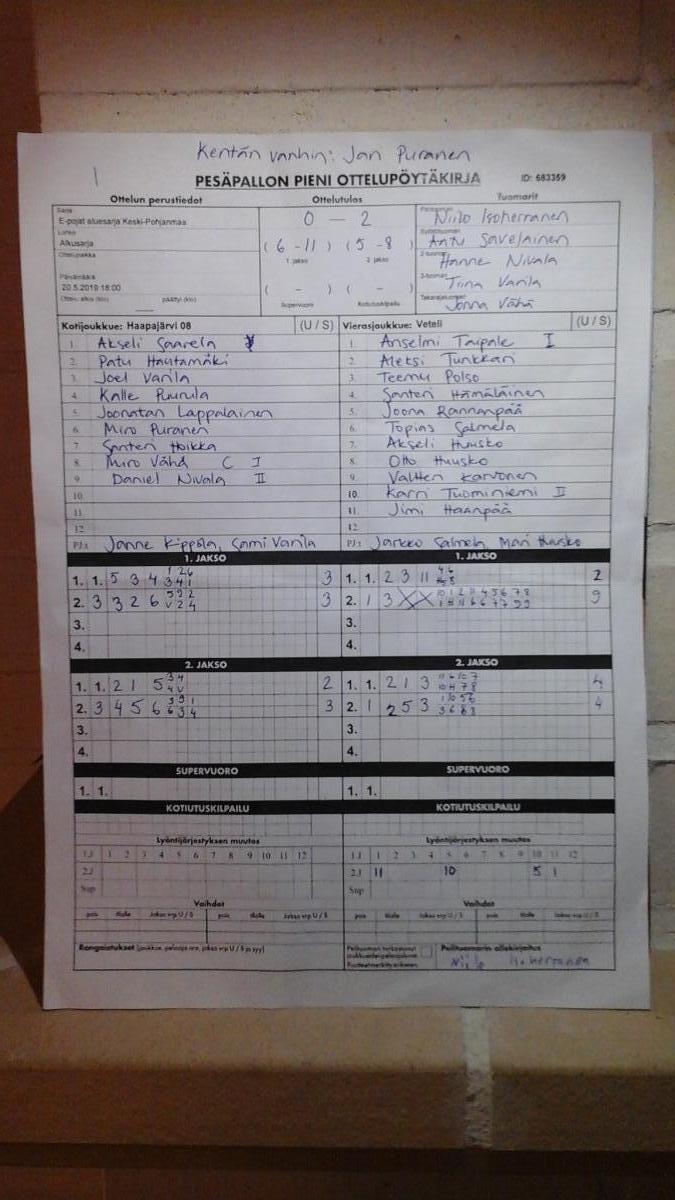 Kentän vanhin: Jan Puranen
PESÄPALLON PIENI OTTELUPÖYTÄKIRJA ID: 683359
Ottelun perustiedot Ottelutulos Tuomarit
Sarja
E-pojat aluesarja Keski-Pohjanmaa
Lohko
Alkusarja
Ottelupaikka
Päivämäärä
20.5.2019 18:00
Ottelu alkoi (klo) päättyi (klo)
0 - 2
(6 - 11) (5 - 8)
1. jakso 2. jakso
( - ) ( - )
Supervuoro Kotiutuskilpailu
Niilo Isoherranen
Antu Savelainen
Hanne Nivala
Tiina Varila
Jonna Vähä
Kotijoukkue: Haapajärvi 08 (U / S)
1. Akseli Saarela
2. Patu Hautamäki
3. Joel Varila
4. Kalle Puurula
5. Joonatan Lappalainen
6. Miro Puranen
7. Santeri Hoikka
8. Miro Vähä C I
9. Daniel Nivala II
10.
11.
12.
PJ: Janne Kippola, Sami Varila
Vierasjoukkue: Veteli (U / S)
1. Anselmi Taipale I
2. Aleksi Tunkkari
3. Teemu Polso
4. Santeri Hämäläinen
5. Joona Rannanpää
6. Topias Salmela
7. Akseli Huusko
8. Otto Huusko
9. Valtteri Karvonen
10. Karri Tuominiemi II
11. Jimi Haanpää
12.
PJ: Jarkko Salmela, Mari Huusko
1. JAKSO 1. JAKSO
1. 1. 5 3 4 3 1. 1. 2 3 11 2
2. 3 3 2 6 3 2. 1 3 X X 9
3. 3.
4. 4.
2. JAKSO 2. JAKSO
1. 1. 2 1 5 2 1. 1. 2 1 3 4
2. 3 4 5 6 3 2. 1 2 5 3 4
3. 3.
4. 4.
SUPERVUORO SUPERVUORO
1. 1. 1. 1.
KOTIUTUSKILPAILU KOTIUTUSKILPAILU
Lyöntijärjestyksen muutos Lyöntijärjestyksen muutos
1.J 1 2 3 4 5 6 7 8 9 10 11 12 1.J 1 2 3 4 5 6 7 8 9 10 11 12
2.J 2.J 11 10 5 1
Sup Sup
Vaihdot Vaihdot
pois tilalle Jakso vrp U / S pois tilalle Jakso vrp U / S pois tilalle Jakso vrp U / S pois tilalle Jakso vrp U / S
Rangaistukset (joukkue, pelaaja nro, jakso vrp U / S ja syy)
Pelituomarin allekirjoitus
Niilo Isoherranen